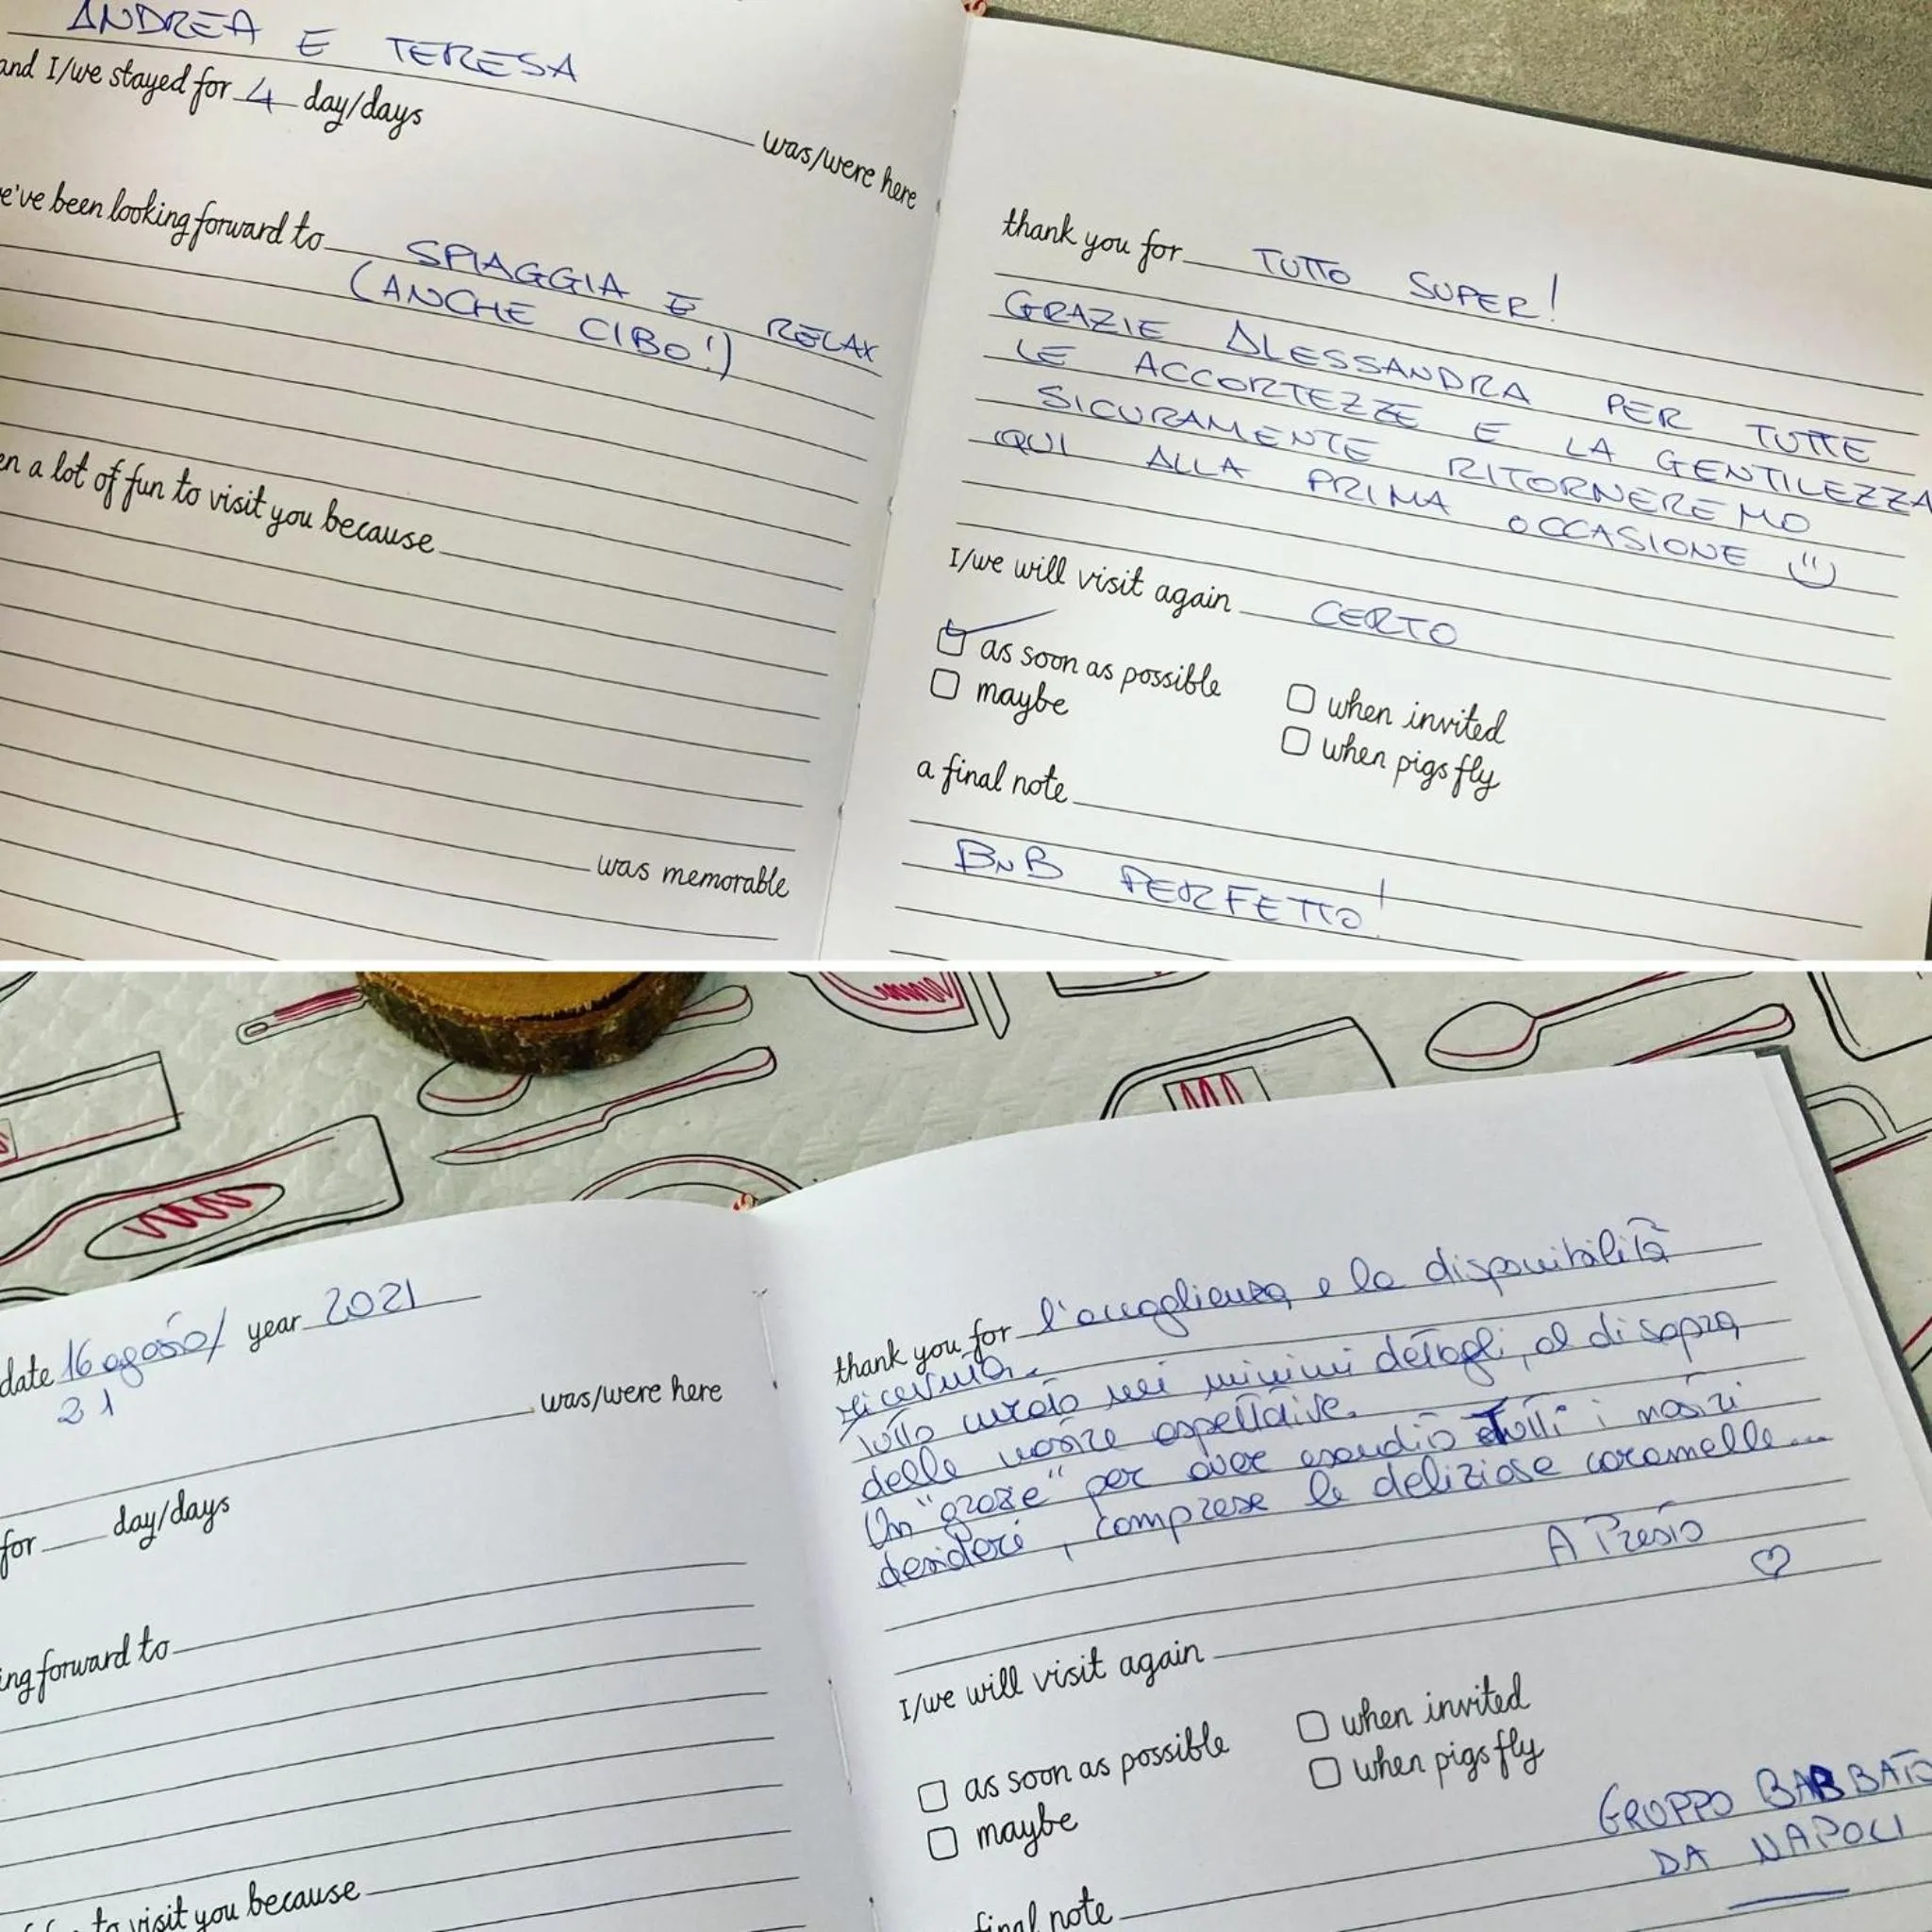 ANDREA E TERESA
was/were here
and I/we stayed for 4 day/days
e've been looking forward to SPIAGGIA E RELAX
(ANCHE CIBO!)
en a lot of fun to visit you because
was memorable
thank you for TUTTO SUPER!
GRAZIE ALESSANDRA PER TUTTE
LE ACCORTEZZE E LA GENTILEZZA
SICURAMENTE RITORNEREMO
QUI ALLA PRIMA OCCASIONE
I/we will visit again CERTO
as soon as possible
when invited
maybe
when pigs fly
a final note
BnB PERFETTO!
date 16 agosto/ year 2021
21
was/were here
for day/days
ing forward to
to visit you because
thank you for l'accoglienza e la disponibilità
ricevuta.
Tutto curato nei minimi dettagli, al di sopra
delle nostre aspettative.
Un "grazie" per aver esaudito tutti i nostri
desideri, comprese le deliziose caramelle...
A Presto
I/we will visit again
as soon as possible
when invited
maybe
when pigs fly
final note
GRUPPO BABBATO
DA NAPOLI